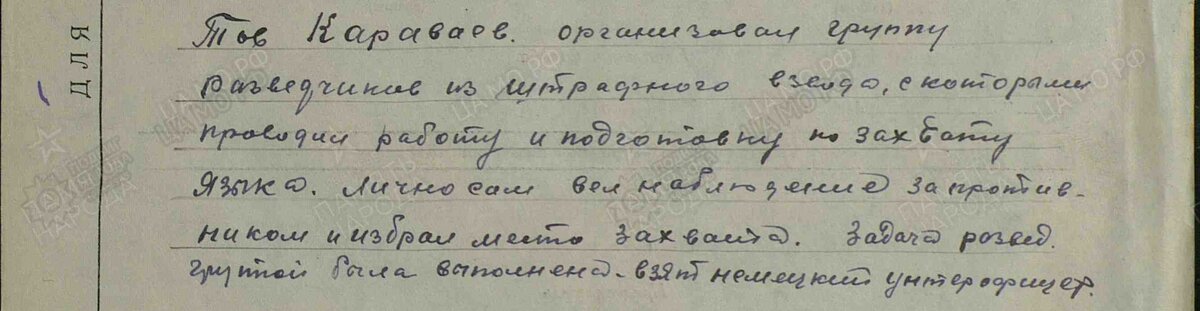 ДЛЯ
Тов Караваев. организовал группу
разведчиков из штрафного взвода, с которыми
проводил работу и подготовку по захвату
языка. Лично сам вел наблюдение за против-
ником и избрал место захвата. Задача развед.
группой была выполнена - взят немецкий унтерофицер.